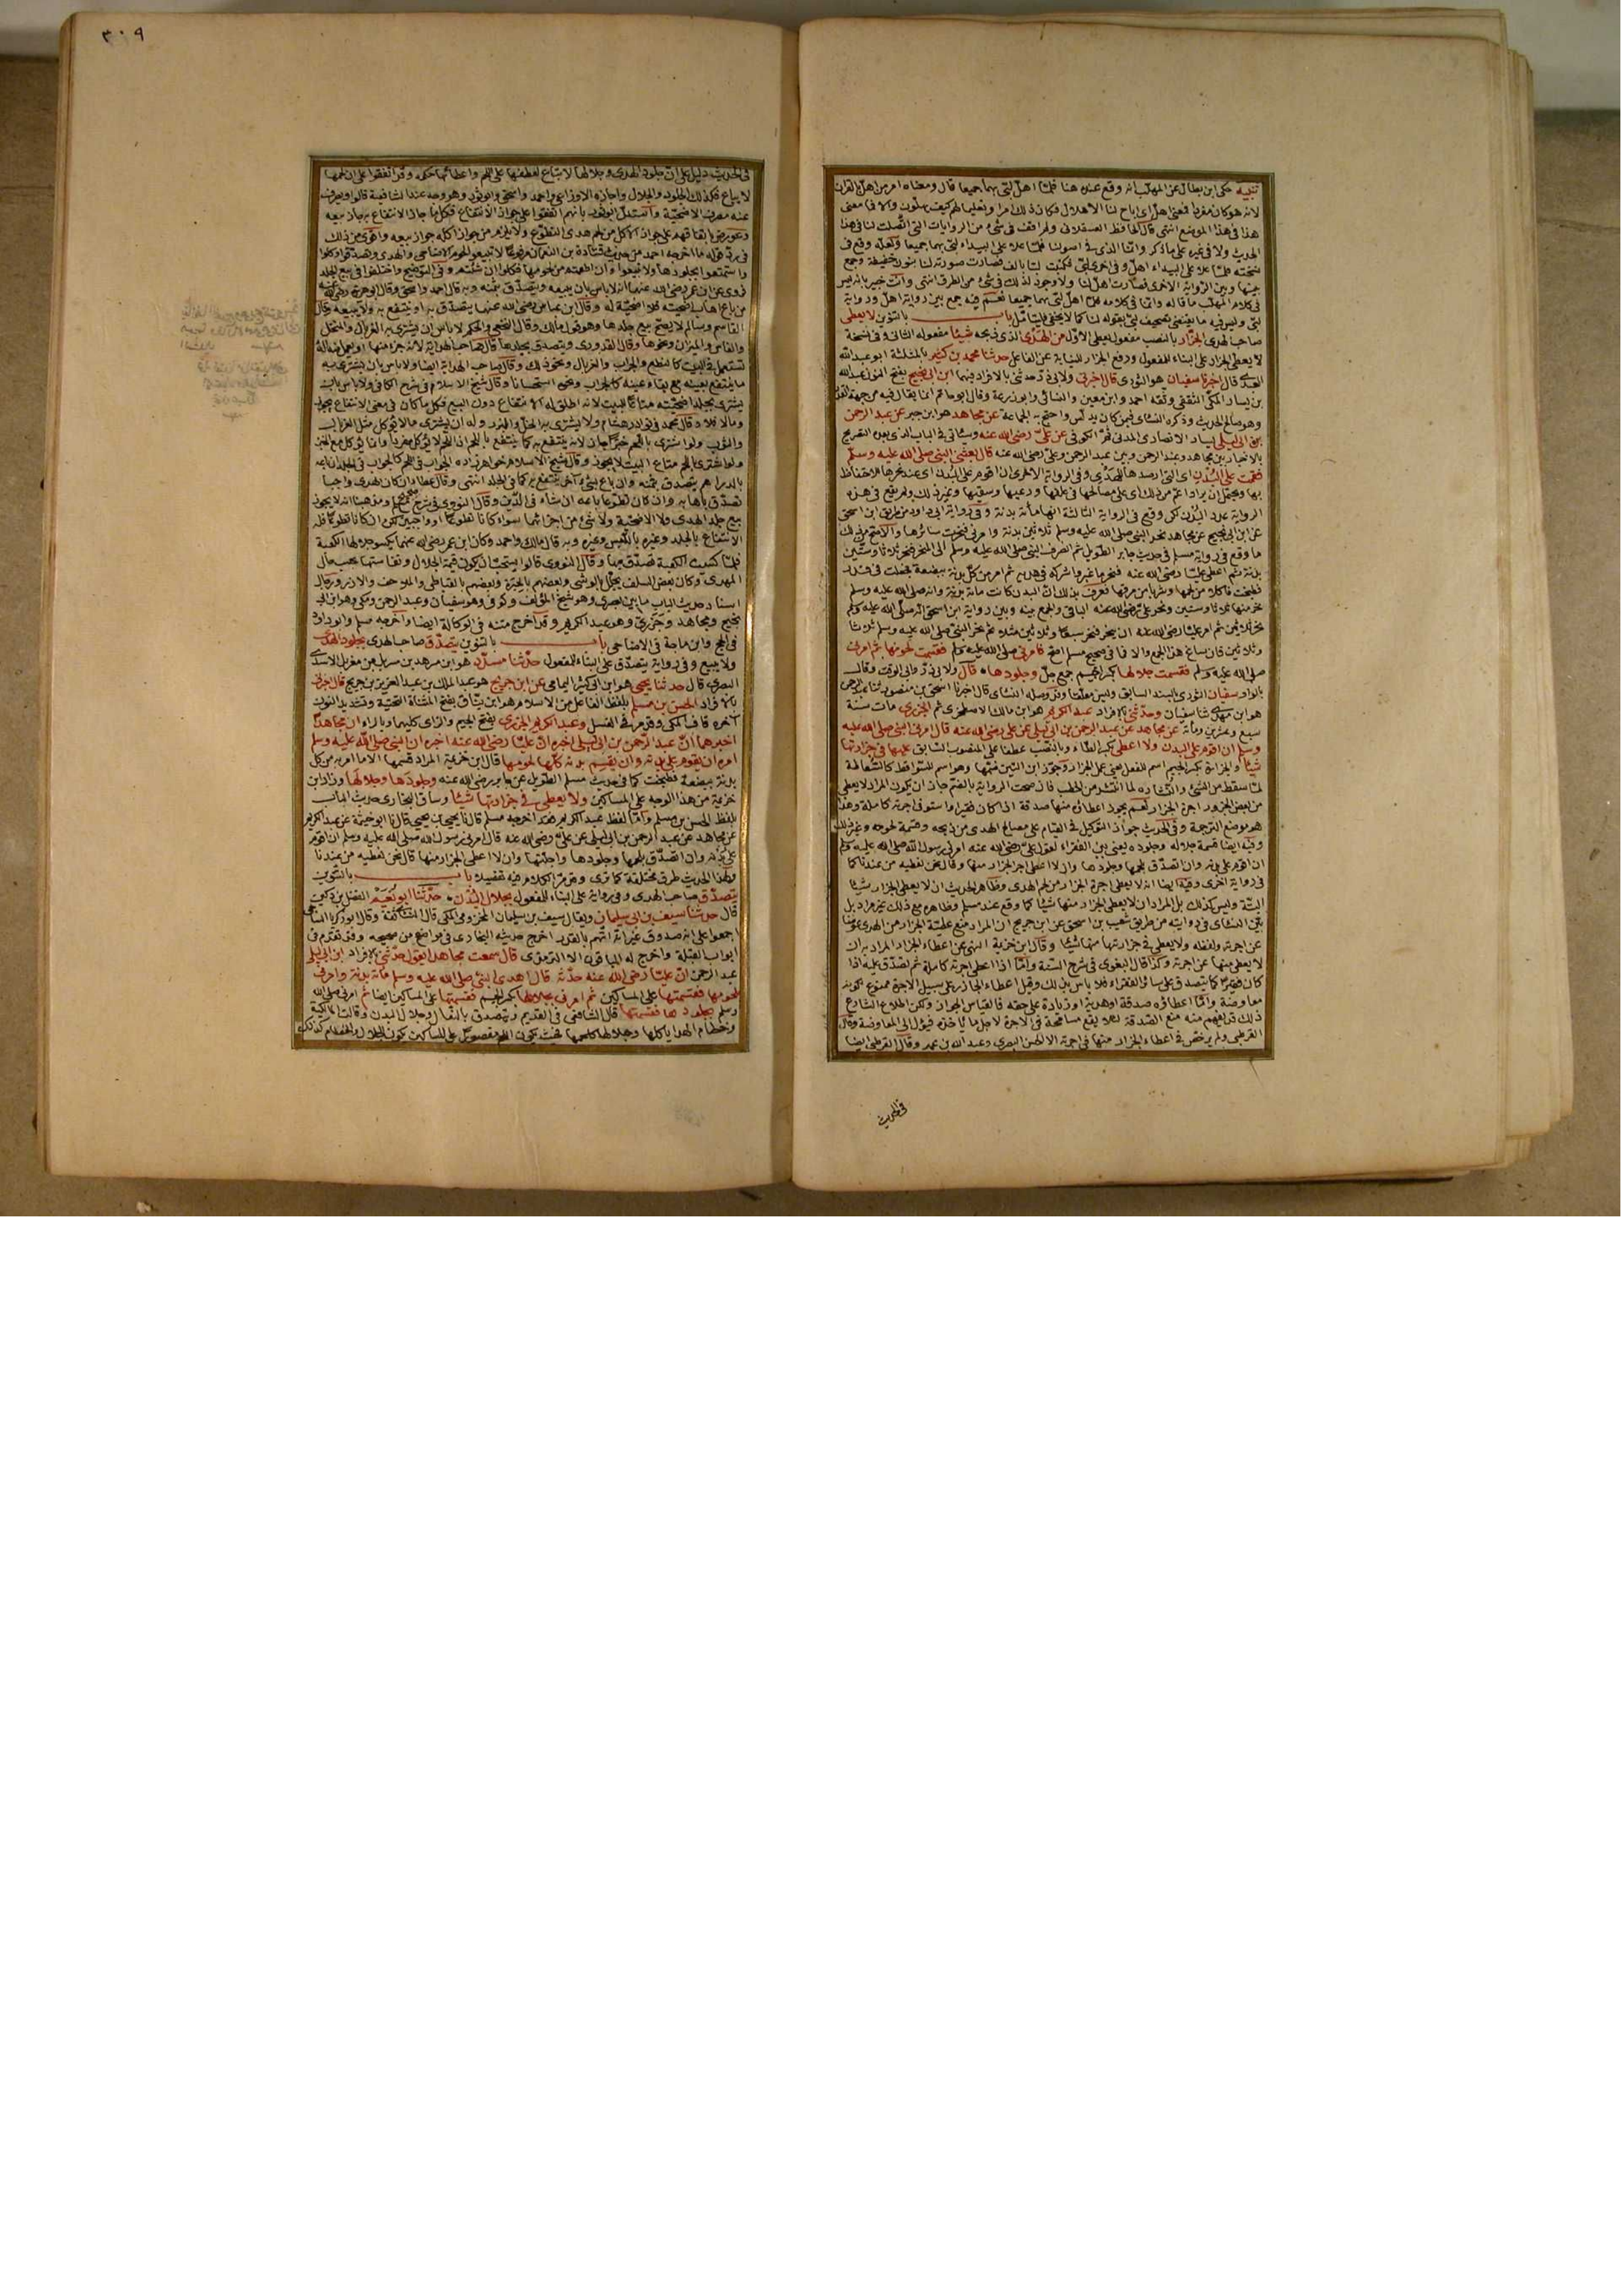 تنبيه حكى ابن بطال عن المهلب انه وقع عنده هنا فلما اهل لبى بهما جميعا قال ومعناه امر من اهل بالقران
لانه هو كان مفردا فمعنى اهل اى اباح لنا الاهلال فكان ذلك امرا وتعليما لهم كيف يهلون والا فما معنى
هذا فى هذا الموضع انتهى قال الحافظ العسقلانى ولم اقف فى شئ من الروايات التى اتصلت لنا فى هذا
الحديث ولا فى غيره على ما ذكر وانما الذى فى اصولنا فلما علا على البيداء لبى بهما جميعا ولعله وقع فى
نسخته فلما علا على البيداء اهل وفى اخرى لبى فكتبت لبا بالف فصارت صورته لنا بنون خفيفة وجمع
بينها وبين الرواية الاخرى فصارت اهل لنا ولا وجود لذلك فى شئ من الطرق انتهى وانت خبير بانه ليس
فى كلام المهلب ما قاله وانما فى كلامه فلما اهل لبى بهما جميعا نعم فيه جمع بين رواية اهل ورواية
لبى وليس فيه ما يقتضى تصحيف لبى بقوله لنا كما لا يخفى فليتأمل باب بالتنوين لا يعطى
صاحب الهدى الجزار بالنصب مفعول يعطى الاول من الهدى الذى ذبحه شيئا مفعوله الثانى وفى نسخة
لا يعطى الجزار على البناء للمفعول ورفع الجزار للنيابة عن الفاعل حدثنا محمد بن كثير بالمثلثة ابو عبد الله
العبدى قال اخبرنا سفيان هو الثورى قال اخبرنى ولابى ذر حدثنى بالافراد فيهما ابن ابى نجيح بفتح النون عبد الله
بن يسار المكى الثقفى وثقه احمد وابن معين والنسائى وابو زرعة وقال ابو حاتم انما يقال فيه من جهة القدر
وهو صالح الحديث وذكره النسائى فيمن كان يدلس واحتج به الجماعة عن مجاهد هو ابن جبر عن عبد الرحمن
بن ابى ليلى يسار الانصارى المدنى ثم الكوفى عن على رضى الله عنه وسيأتى فى الباب الذى بعده التصريح
بالاخبار بين مجاهد وعبد الرحمن وبين عبد الرحمن وعلى رضى الله عنه قال بعثنى النبى صلى الله عليه وسلم
فقمت على البدن اى التى ارصدها للهدى وفى الرواية الاخرى ان اقوم على البدن اى عند نحرها للاحتفاظ
بها ويحتمل ان يراد اعم من ذلك اى على مصالحها فى علفها ورعيها وسقيها وغير ذلك ولم يقع فى هذه
الرواية عدد البدن لكن وقع فى الرواية الثالثة انها مأة بدنة وفى رواية ابى داود من طريق ابن اسحق
عن ابن ابى نجيح عن مجاهد نحر النبى صلى الله عليه وسلم ثلاثين بدنة وامرنى فنحرت سائرها والاصح من ذلك
ما وقع فى رواية مسلم فى حديث جابر الطويل ثم انصرف النبى صلى الله عليه وسلم الى المنحر فنحر ثلاثا وستين
بدنة ثم اعطى عليا رضى الله عنه فنحر ما غبر واشركه فى هديه ثم امر من كل بدنة ببضعة فجعلت فى قدر
فطبخت فاكلا من لحمها وشربا من مرقها فعرف بذلك ان البدن كانت مائة بدنة وانه صلى الله عليه وسلم
نحر منها ثلاثا وستين ونحر على رضى الله عنه الباقى والجمع بينه وبين رواية ابن اسحق انه صلى الله عليه وسلم
نحر ثلاثين ثم امر عليا رضى الله عنه ان ينحر فنحر سبعا وثلاثين مثلا ثم نحر النبى صلى الله عليه وسلم ثلاثا
وثلاثين فان ساغ هذا الجمع والا فما فى صحيح مسلم اصح فامرنى صلى الله عليه وسلم فقسمت لحومها ثم امرنى
صلى الله عليه وسلم فقسمت جلالها بكسر الجيم جمع جل وجلودها قال ولابى ذر والى الوقت وقال
بالواو سفيان الثورى بالسند السابق وليس معلقا وقد وصله النسائى قال اخبرنا اسحق بن منصور ثنا عبد الرحمن
هو ابن مهدى ثنا سفيان وحدثنى بالافراد عبد الكريم هو ابن مالك الاصطخرى ثم الجزرى مات سنة
سبع وعشرين ومأة عن مجاهد عن عبد الرحمن بن ابى ليلى عن على رضى الله عنه قال امرنى النبى صلى الله عليه
وسلم ان اقوم على البدن ولا اعطى بكسر الطاء وبالنصب عطفا على المنصوب السابق عليها فى جزارتها
شيئا والجزارة بكسر الجيم اسم للفعل يعنى عمل الجزار وجوز ابن التين ضمها وهو اسم للسواقط كالسقاطة
لما سقط من الشئ والنشارة لما انتشر من الخشب فان صحت الرواية بالضم جاز ان يكون المراد لا يعطى
من بعض الجزور اجرة الجزار نعم يجوز اعطاؤه منها صدقة اذا كان فقيرا واستوفى اجرته كاملة وهذا
هو موضع الترجمة وفى الحديث جواز التوكيل فى القيام على مصالح الهدى من ذبحه وقسمة لحومه وغير ذلك
وفيه ايضا قسمة جلاله وجلوده يعنى بين الفقراء لقول على رضى الله عنه امرنى رسول الله صلى الله عليه وسلم
ان اقوم على بدنه وان اتصدق بلحمها وجلودها وان لا اعطى اجر الجزار منها وقال نحن نعطيه من عندنا كما
فى رواية اخرى وفيه ايضا انه لا يعطى اجرة الجزار من لحم الهدى وظاهر الحديث ان لا يعطى الجزار شيئا
البتة وليس كذلك بل المراد ان لا يعطى الجزار منها شيئا كما وقع عند مسلم وظاهره مع ذلك غير مراد بل
بين النسائى فى روايته من طريق شعيب بن اسحق عن ابن جريج ان المراد منع عطية الجزار من الهدى عوضا
عن اجرته ولفظه ولا يعطى فى جزارتها منها شيئا وقال ابن خزيمة النهى عن اعطاء الجزار المراد به ان
لا يعطى منها عن اجرته وكذا قال البغوى فى شرح السنة واما اذا اعطى اجرته كاملة ثم تصدق عليه اذا
كان فقيرا كما يتصدق على سائر الفقراء فلا بأس بذلك وقيل اعطاء الجازر على سبيل الاجرة ممنوع لكونه
معاوضة واما اعطاؤه صدقة او هدية او زيادة على حقه فالقياس الجواز ولكن اطلاق الشارع
ذلك قد يفهم منه منع الصدقة لئلا يقع مسامحة فى الاجرة لاجل ما يأخذه فيؤل الى المعاوضة وقال
القرطبى ولم يرخص فى اعطاء الجزار منها فى اجرته الا الحسن البصرى وعبد الله بن عبيد وقال القرطبى ايضا
فى الحديث
٣٠٩
فى الحديث دليل على ان جلود الهدى وجلالها لا تباع لعطفها على اللحم واعطائها حكمه وقد اتفقوا على ان لحمها
لا يباع فكذلك الجلود والجلال واجازه الاوزاعى واحمد واسحق وابو ثور وهو وجه عند الشافعية قالوا ويصرف ثمنه
عنه مصرف الاضحية واستدل ابو ثور بانهم اتفقوا على جواز الانتفاع فكل ما جاز الانتفاع به جاز بيعه
وعورض باتفاقهم على جواز الاكل من لحم هدى التطوع ولا يلزم من جواز اكله جواز بيعه واقوى من ذلك
فى رد قوله ما اخرجه احمد من حديث قتادة بن النعمان مرفوعا لا تبيعوا لحوم الاضاحى والهدى وتصدقوا وكلوا
واستمتعوا بجلودها ولا تبيعوا وان اطعمتم من لحومها فكلوا ان شئتم وفى التوضيح واختلفوا فى بيع الجلد
فروى عن ابن عمر رضى الله عنهما انه لا باس بان يبيعه ويتصدق بثمنه وبه قال احمد واسحق وقال ابو هريرة رضى الله عنه
من باع اهاب اضحيته فلا اضحية له وقال ابن عباس رضى الله عنهما يتصدق به او ينتفع به ولا يبيعه وقال
القاسم وسالم لا يصح بيع جلدها وهو قول مالك وقال النخعى والحكم لا باس ان يشترى به الغربال والمنخل
والفاس والميزان ونحوها وقال القدورى ويتصدق بجلدها قال صاحب الهداية لانه جزء منها او يعمل منه آلة
تستعمل فى البيت كالنطع والجراب والغربال ونحو ذلك وقال صاحب الهداية ايضا ولا باس بان يشترى به
ما ينتفع بعينه مع بقاء عينه كالجراب ونحوه استحسانا وقال شيخ الاسلام فى شرح الكافى ولا باس بان
يشترى بجلد اضحيته متاعا للبيت لانه اطلق له الانتفاع دون البيع فكل ما كان فى معنى الانتفاع يجوز
وما لا فلا وقال محمد فى نوادر هشام ولا يشترى به الخل والمرى وله ان يشترى ما لا يؤكل مثل الغربال
والثوب ولو اشترى باللحم خبزا جاز لانه ينتفع به كما ينتفع باللحم اذ اللحم لا يؤكل مفردا وانما يؤكل مع الخبز
ولو اشترى باللحم متاع البيت لا يجوز وقال شيخ الاسلام خواهر زاده الجواب فى اللحم كالجواب فى الجلد ان باعه
بالدراهم يتصدق بثمنه وان باع بشئ آخر ينتفع به كما فى الجلد انتهى وقال عطاء ان كان الهدى واجبا
تصدق باهابه وان كان تطوعا باعه ان شاء فى الدين وقال النووى فى شرح مسلم ومذهبنا انه لا يجوز
بيع جلد الهدى ولا الاضحية ولا شئ من اجزائهما سواء كانا تطوعا او واجبين لكن ان كانا تطوعا فله
الانتفاع بالجلد وغيره باللبس وغيره وبه قال مالك واحمد وكان ابن عمر رضى الله عنهما يكسو جلالها الكعبة
فلما كسيت الكعبة تصدق بها وقال النووى قالوا يستحب ان يكون قيمة الجلال ونفاستها بحسب حال
المهدى وكان بعض السلف يجلل بالوشى وبعضهم بالحبرة وبعضهم بالقباطى والملاحف والازر ورجال
اسناد حديث الباب ما بين بصرى وهو شيخ المؤلف وكوفى وهو سفيان وعبد الرحمن ومكى وهو ابن ابى
نجيح ومجاهد وجزرى وهو عبد الكريم وقد اخرج متنه فى الوكالة ايضا واخرجه مسلم وابو داود
فى الحج وابن ماجة فى الاضاحى باب بالتنوين يتصدق صاحب الهدى بجلود الهدى
ولا يبيع وفى رواية يتصدق على البناء للمفعول حدثنا مسدد هو ابن مسرهد بن مسربل بن مغربل الاسدى
البصرى قال حدثنا يحيى هو ابن ابى كثير اليمامى عن ابن جريج هو عبد الملك بن عبد العزيز بن جريج قال اخبرنى
بالافراد الحسن بن مسلم بلفظ الفاعل من الاسلام هو ابن يناق بفتح المثناة التحتية وتشديد النون
آخره قاف المكى وقد مر فى الغسل وعبد الكريم الجزرى بفتح الجيم والزاى كليهما وبالراء ان مجاهدا
اخبرهما ان عبد الرحمن بن ابى ليلى اخبره ان عليا رضى الله عنه اخبره ان النبى صلى الله عليه وسلم
امره ان يقوم على بدنه وان يقسم بدنه كلها لحومها قال ابن خزيمة المراد قسمها الا ما امر به من كل
بدنة ببضعة فطبخت كما فى حديث مسلم الطويل عن جابر رضى الله عنه وجلودها وجلالها وزاد ابن
خزيمة من هذا الوجه على المساكين ولا يعطى فى جزارتها شيئا وساق البخارى حديث الباب
بلفظ الحسن بن مسلم واما لفظ عبد الكريم فقد اخرجه مسلم قال ثنا يحيى بن يحيى قال نا ابو خيثمة عن عبد الكريم
عن مجاهد عن عبد الرحمن بن ابى ليلى عن على رضى الله عنه قال امرنى رسول الله صلى الله عليه وسلم ان اقوم
على بدنه وان اتصدق بلحمها وجلودها واجلتها وان لا اعطى الجزار منها قال نحن نعطيه من عندنا
ولهذا الحديث طرق مختلفة كما ترى وقد مر الكلام فيه تفصيلا باب بالتنوين
يتصدق صاحب الهدى وفى رواية على البناء للمفعول بجلال البدن حدثنا ابو نعيم الفضل بن دكين
قال حدثنا سيف بن ابى سليمان ويقال سيف بن سليمان المخزومى المكى قال النسائى ثقة وقال ابو زكريا الساجى
اجمعوا على انه صدوق غير انه اتهم بالقدر اخرج حديثه البخارى فى مواضع من صحيحه وقد تقدم فى
ابواب القبلة واخرج له الباقون الا الترمذى قال سمعت مجاهدا يقول حدثنى بالافراد ابن ابى ليلى
عبد الرحمن ان عليا رضى الله عنه حدثه قال اهدى النبى صلى الله عليه وسلم مأة بدنة وامرنى
بلحومها فقسمتها على المساكين ثم امرنى بجلالها بكسر الجيم فقسمتها على المساكين ايضا ثم امرنى صلى الله
وسلم بجلودها فقسمتها قال الشافعى فى القديم ويتصدق بالنعال وجلال البدن وقالت المالكية
وخطام الهدايا كلها وجلالها كلحمها فحيث يكون اللحم مقصورا على المساكين يكون الجلال والخطام كذلك